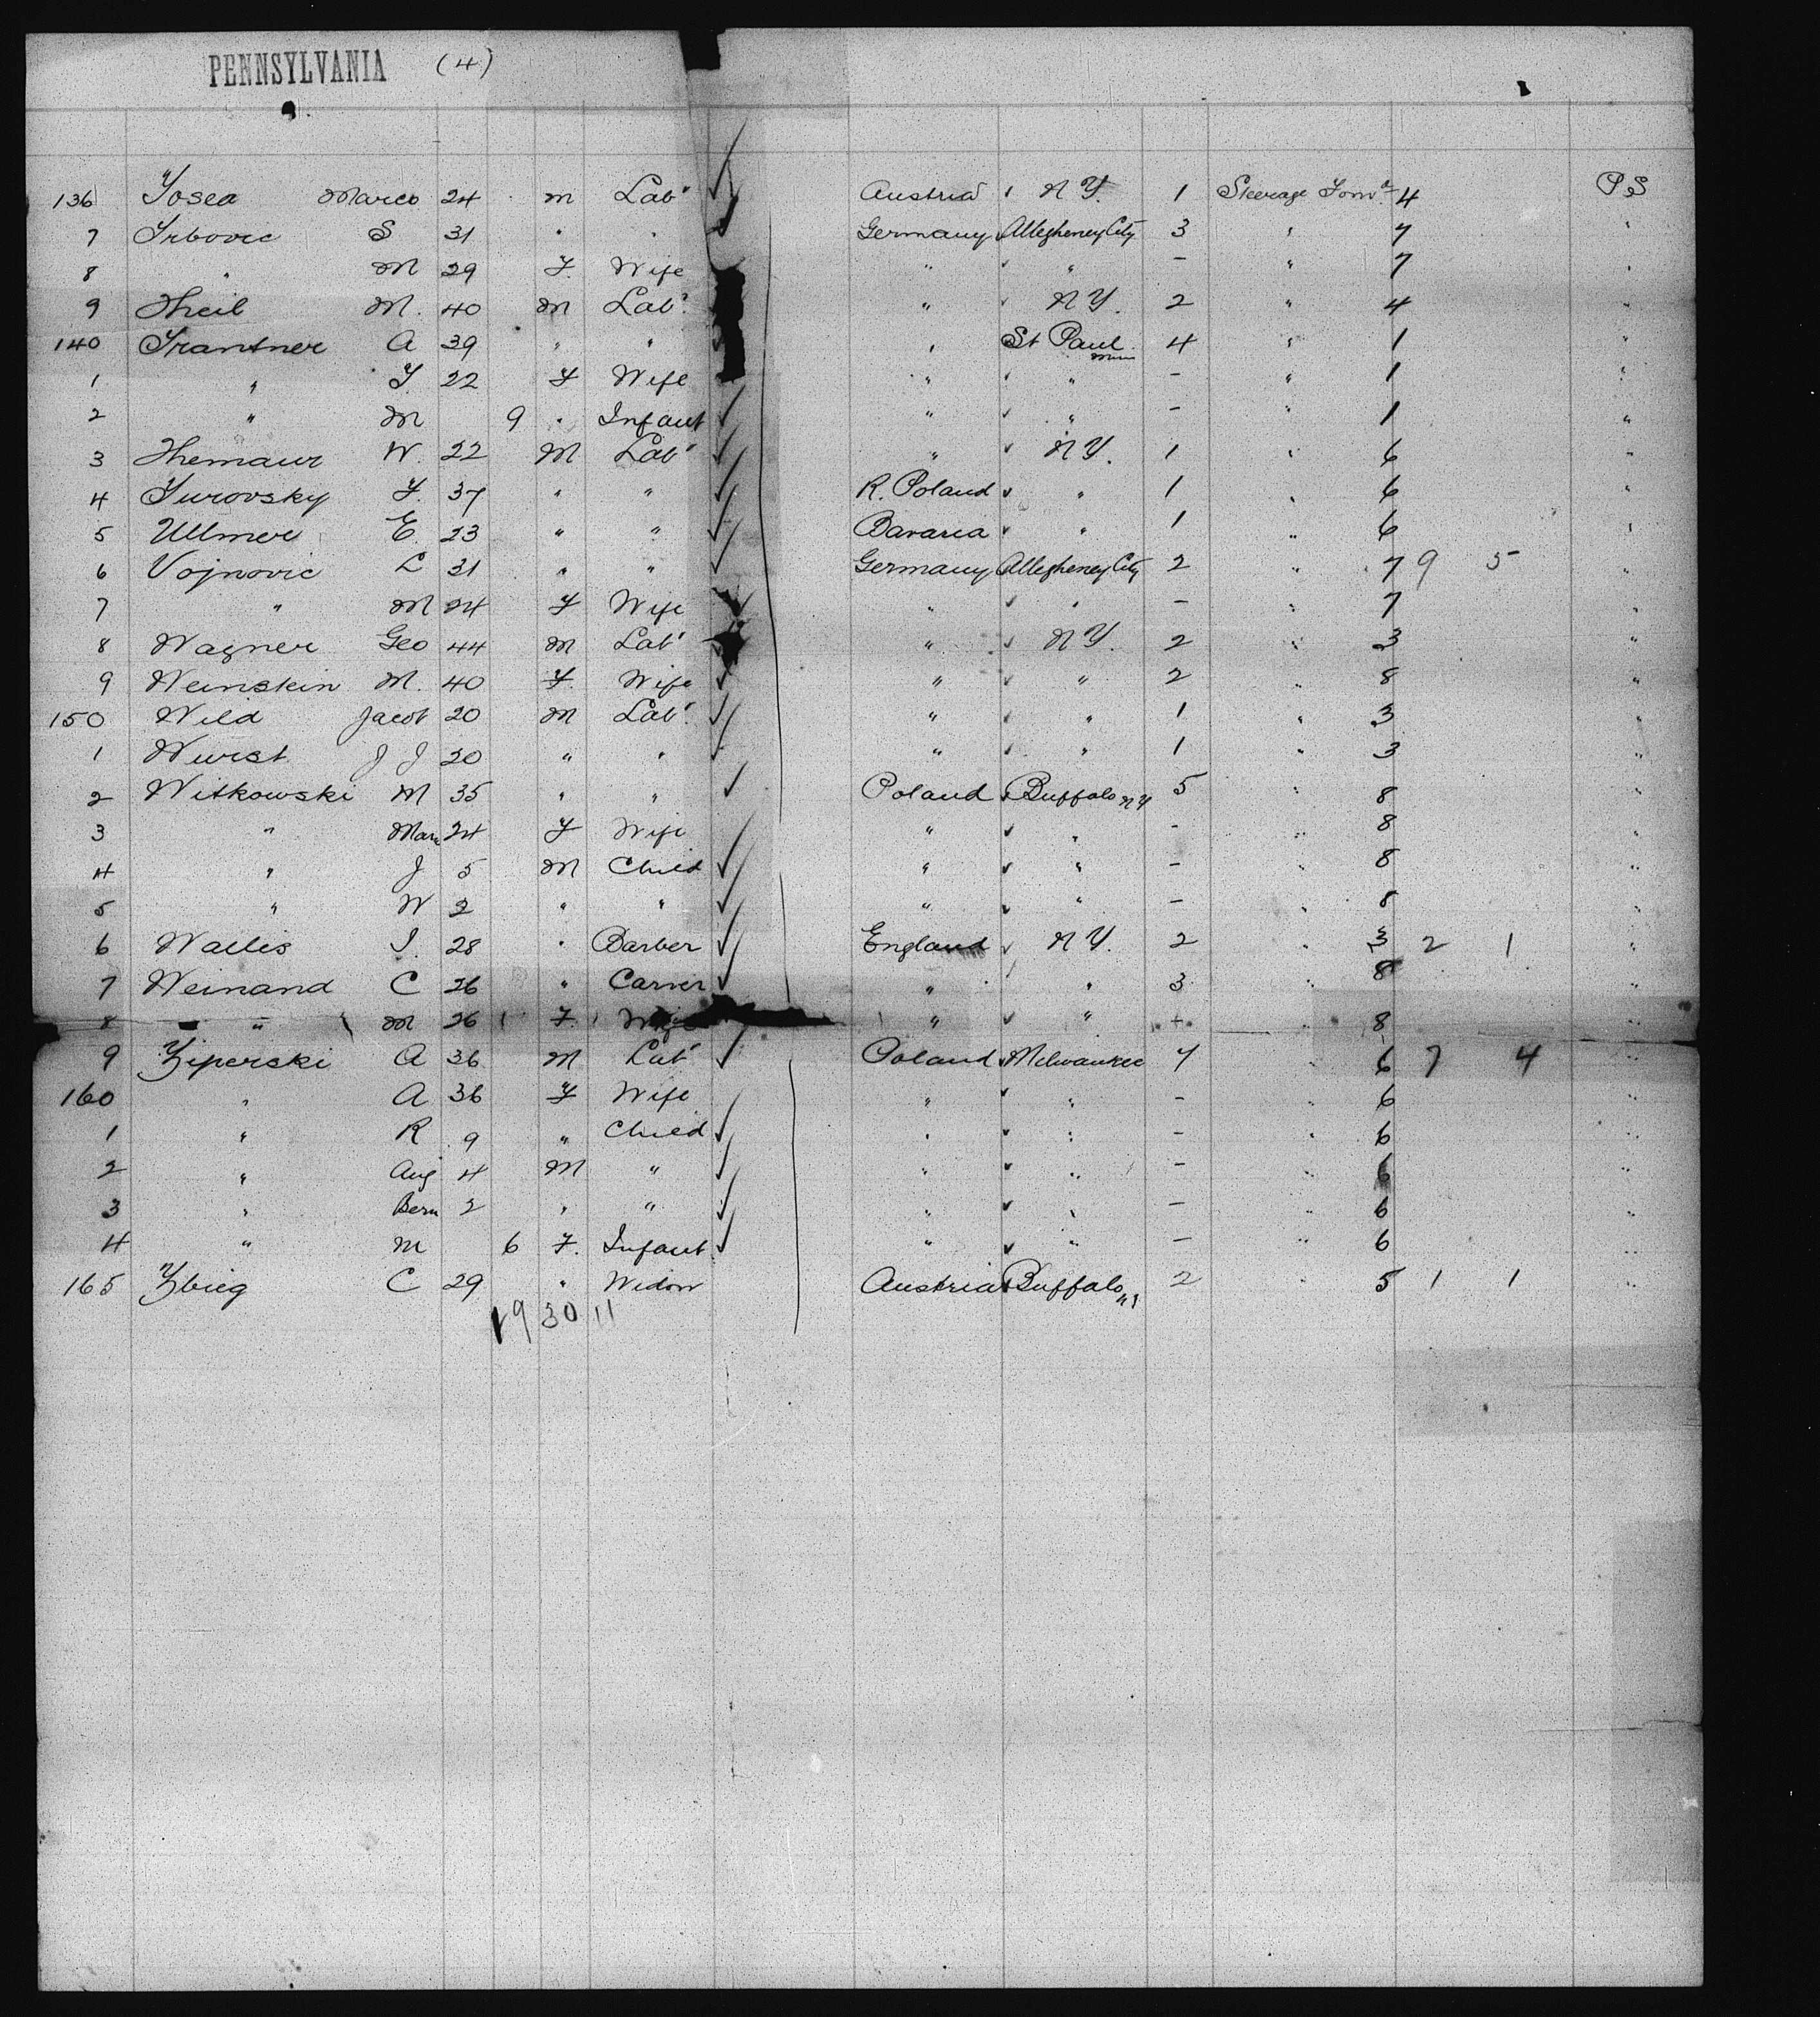 PENNSYLVANIA (4)
136 Tosea Marco 24 m Lab' Austria N Y. 1 Steerage Forw'd 4 P S
7 Trbovic S 31 " " Germany Allegheney City 3 " 7 "
8 " M 29 F. Wife " " - " 7 "
9 Theil M. 40 M Lab' " N Y. 2 " 4 "
140 Trantner A 39 " " " St Paul Minn 4 " 1 "
1 " T 22 F Wife " " - " 1 "
2 " M 9 " Infant " " - " 1 "
3 Themaur W. 22 M Lab' " N Y. 1 " 6 "
4 Turovsky F. 37 " " R. Poland " 1 " 6 "
5 Ullmer E. 23 " " Bavaria " 1 " 6 "
6 Vojnovic L 31 " " Germany Allegheney City 2 " 7 9 5 "
7 " M 24 F Wife " " - " 7 "
8 Wagner Geo 44 M Lab' " N Y. 2 " 3 "
9 Weinstein M. 40 F. Wife " " 2 " 8 "
150 Wild Jacob 20 M Lab' " " 1 " 3 "
1 Wurst J J 20 " " " " 1 " 3 "
2 Witkowski M 35 " " Poland Buffalo N Y 5 " 8 "
3 " Mari 24 F Wife " " - " 8 "
4 " J 5 M Child " " - " 8 "
5 " W 2 " " " " - " 8 "
6 Wallis I. 28 " Barber England N Y. 2 " 3 2 1 "
7 Weinand C 26 " Carver " " 3 " 8 "
8 " M 26 F. Wife " " - " 8 "
9 Ziperski A 36 M Lab' Poland Milwaukee 7 " 6 7 4 "
160 " A 36 F Wife " " - " 6 "
1 " R 9 " Child " " - " 6 "
2 " Aug 4 M " " " - " 6 "
3 " Bern 2 " " " " - " 6 "
4 " M 6 F. Infant " " - " 6 "
165 Zbieg C 29 " Widow Austria Buffalo 2 " 5 1 1 "
19 30 11